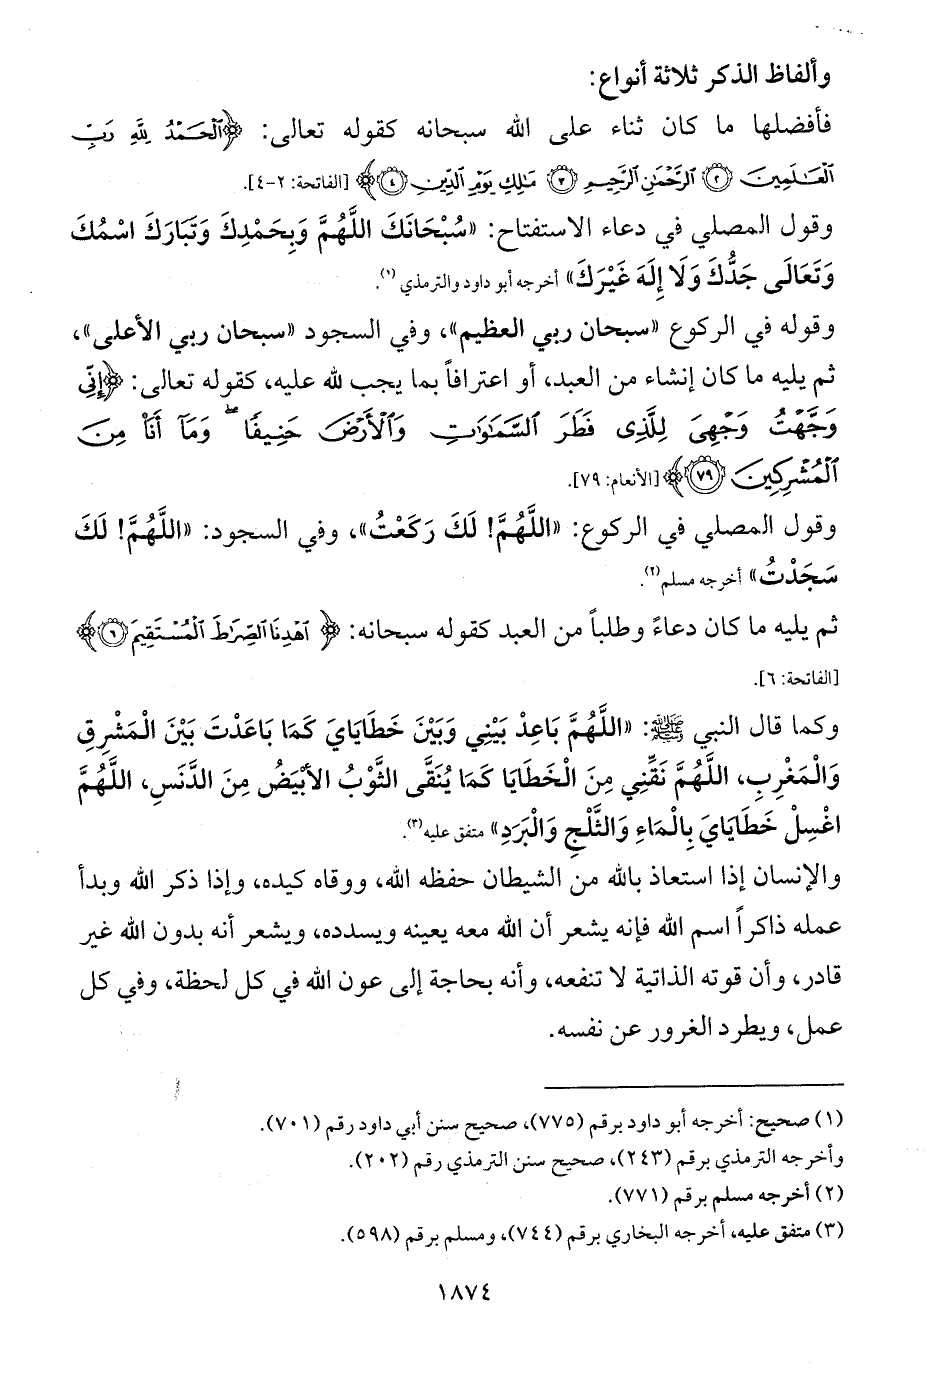 وألفاظ الذكر ثلاثة أنواع:
فأفضلها ما كان ثناء على الله سبحانه كقوله تعالى: ﴿ٱلْحَمْدُ لِلَّهِ رَبِّ
ٱلْعَـٰلَمِينَ ۝٢ ٱلرَّحْمَـٰنِ ٱلرَّحِيمِ ۝٣ مَـٰلِكِ يَوْمِ ٱلدِّينِ ۝٤﴾ [الفاتحة: ٢-٤].
وقول المصلي في دعاء الاستفتاح: «سُبْحَانَكَ اللَّهُمَّ وَبِحَمْدِكَ وَتَبَارَكَ اسْمُكَ
وَتَعَالَى جَدُّكَ وَلَا إِلَهَ غَيْرَكَ» أخرجه أبو داود والترمذي(١).
وقوله في الركوع «سبحان ربي العظيم»، وفي السجود «سبحان ربي الأعلى»،
ثم يليه ما كان إنشاء من العبد، أو اعترافاً بما يجب لله عليه، كقوله تعالى: ﴿إِنِّي
وَجَّهْتُ وَجْهِىَ لِلَّذِى فَطَرَ ٱلسَّمَـٰوَٰتِ وَٱلْأَرْضَ حَنِيفًا ۖ وَمَآ أَنَا۠ مِنَ
ٱلْمُشْرِكِينَ ۝٧٩﴾ [الأنعام: ٧٩].
وقول المصلي في الركوع: «اللَّهُمَّ! لَكَ رَكَعْتُ»، وفي السجود: «اللَّهُمَّ! لَكَ
سَجَدْتُ» أخرجه مسلم(٢).
ثم يليه ما كان دعاءً وطلباً من العبد كقوله سبحانه: ﴿ٱهْدِنَا ٱلصِّرَٰطَ ٱلْمُسْتَقِيمَ ۝٦﴾
[الفاتحة: ٦].
وكما قال النبي ﷺ: «اللَّهُمَّ بَاعِدْ بَيْنِي وَبَيْنَ خَطَايَايَ كَمَا بَاعَدْتَ بَيْنَ الْمَشْرِقِ
وَالْمَغْرِبِ، اللَّهُمَّ نَقِّنِي مِنَ الْخَطَايَا كَمَا يُنَقَّى الثَّوْبُ الأَبْيَضُ مِنَ الدَّنَسِ، اللَّهُمَّ
اغْسِلْ خَطَايَايَ بِالْمَاءِ وَالثَّلْجِ وَالْبَرَدِ» متفق عليه(٣).
والإنسان إذا استعاذ بالله من الشيطان حفظه الله، ووقاه كيده، وإذا ذكر الله وبدأ
عمله ذاكراً اسم الله فإنه يشعر أن الله معه يعينه ويسدده، ويشعر أنه بدون الله غير
قادر، وأن قوته الذاتية لا تنفعه، وأنه بحاجة إلى عون الله في كل لحظة، وفي كل
عمل، ويطرد الغرور عن نفسه.
(١) صحيح: أخرجه أبو داود برقم (٧٧٥)، صحيح سنن أبي داود رقم (٧٠١).
وأخرجه الترمذي برقم (٢٤٣)، صحيح سنن الترمذي رقم (٢٠٢).
(٢) أخرجه مسلم برقم (٧٧١).
(٣) متفق عليه، أخرجه البخاري برقم (٧٤٤)، ومسلم برقم (٥٩٨).
١٨٧٤